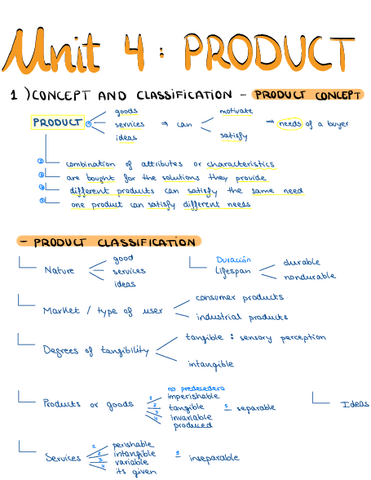 Unit 4 : PRODUCT
1 ) CONCEPT AND CLASSIFICATION - PRODUCT CONCEPT
goods motivate
PRODUCT services ⇒ can ⇒ needs of a buyer
ideas satisfy
combination of attributes or characteristics
are bought for the solutions they provide
different products can satisfy the same need
one product can satisfy different needs
- PRODUCT CLASSIFICATION
good Duración durable
Nature services Lifespan nondurable
ideas
consumer products
Market / type of user
industrial products
tangible : sensory perception
Degrees of tangibility
intangible
no predecedera
1 imperishable
Products or goods 2 tangible 5 separable Ideas
3 invariable
4 produced
1 perishable
Services 2 intangible 5 inseparable
3 variable
4 its given